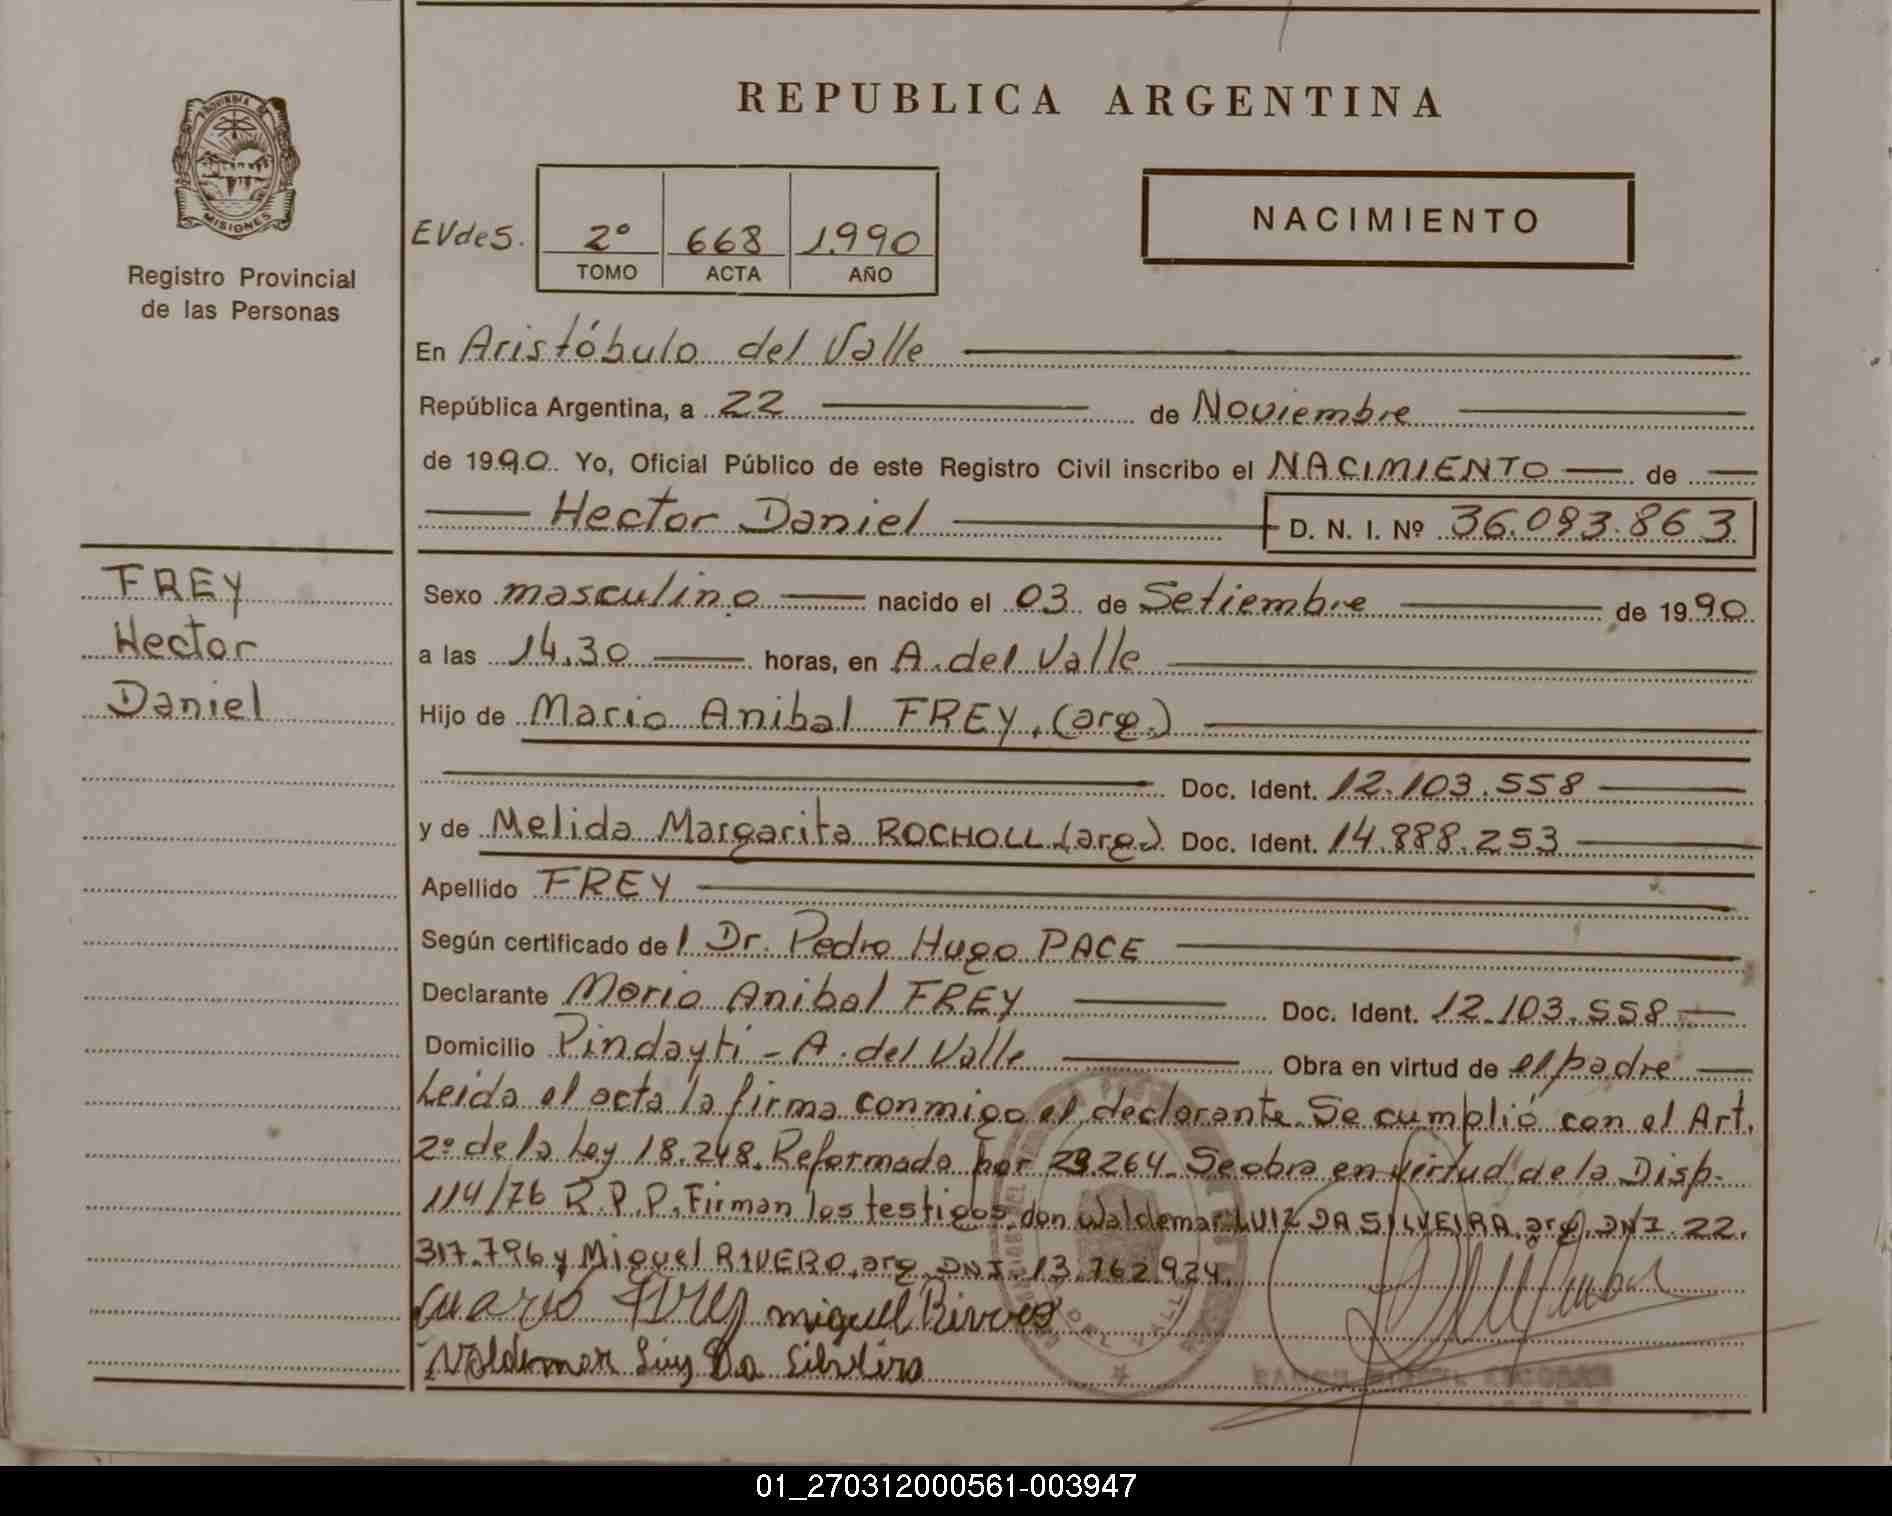 REPUBLICA ARGENTINA
PROVINCIA DE
MISIONES
Registro Provincial
de las Personas
EVdeS. 2º 668 1.990
TOMO ACTA AÑO
NACIMIENTO
En Aristóbulo del Valle
República Argentina, a 22 de Noviembre
de 1990. Yo, Oficial Público de este Registro Civil inscribo el NACIMIENTO de
Hector Daniel D. N. I. Nº 36.093.863
FREY
Hector
Daniel
Sexo masculino nacido el 03 de Setiembre de 1990
a las 14,30 horas, en A. del Valle
Hijo de Mario Anibal FREY, (arg.)
Doc. Ident. 12.103.558
y de Melida Margarita ROCHOLL (arg.) Doc. Ident. 14.888.253
Apellido FREY
Según certificado del Dr. Pedro Hugo PACE
Declarante Mario Anibal FREY Doc. Ident. 12.103.558
Domicilio Pindayti - A. del Valle Obra en virtud de el padre
Leida el acta la firma conmigo el declarante. Se cumplió con el Art.
2º de la Ley 18.248. Reformado por 23.264. Se obra en virtud de la Disp.
114/76 R.P.P. Firman los testigos don Waldemar LUIZ DA SILVEIRA, arg. DNI. 22.
317.796 y Miguel RIVERO, arg. DNI. 13.762.924.
Mario Frey Miguel Rivero
Valdemar Luiz Da Silveira
01_270312000561-003947